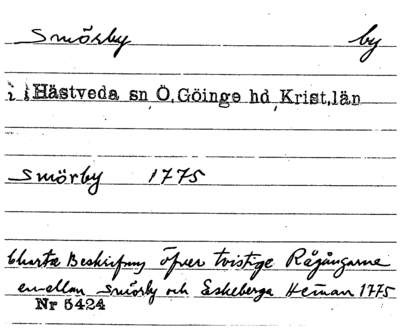 Smörby by
i Hästveda sn Ö. Göinge hd, Krist. län
Smörby 1775
Charta Beskrifning öfver tvistige Rågångarne
emellan Smörby och Eskeberga Heman 1775
Nr 5424